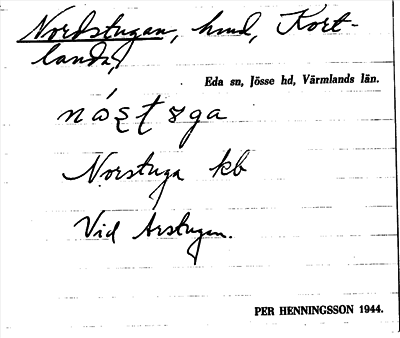 Nordstugan, hmd, Kort-
landa,
Eda sn, Jösse hd, Värmlands län.
Norstuga kb
Vid Arstugan.
PER HENNINGSSON 1944.